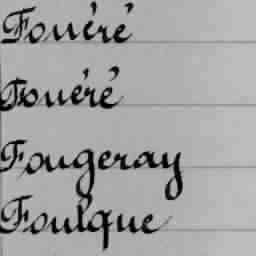 Fouéré
Fouéré
Fougeray
Foulque